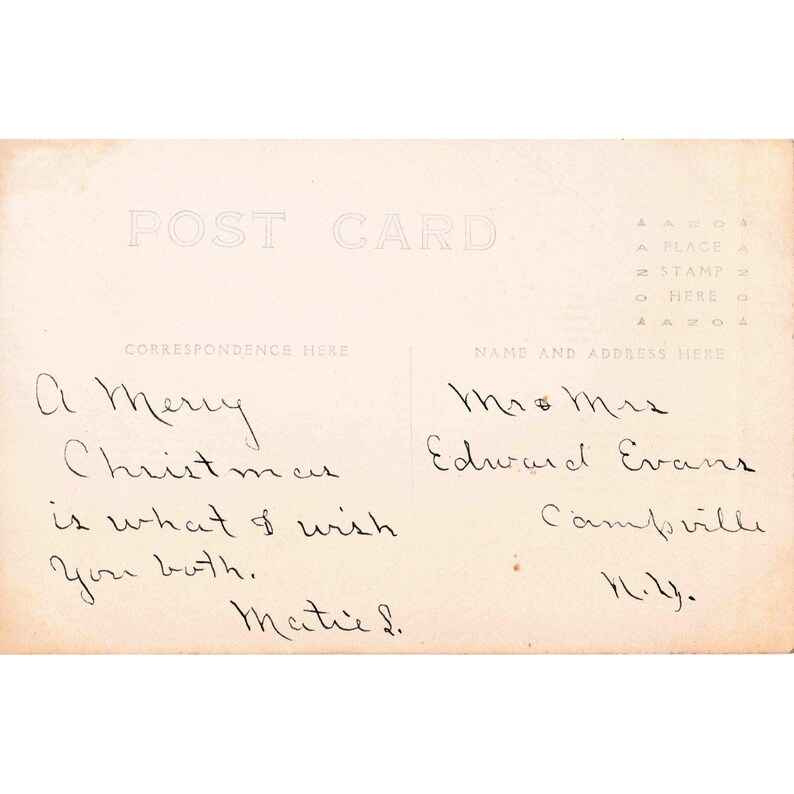 POST CARD
▲ A Z O ▲
A PLACE A
Z STAMP Z
O HERE O
▲ A Z O ▲
CORRESPONDENCE HERE
NAME AND ADDRESS HERE
A Merry
Christmas
is what I wish
you both.
Matie S.
Mr & Mrs
Edward Evans
Campville
N.Y.